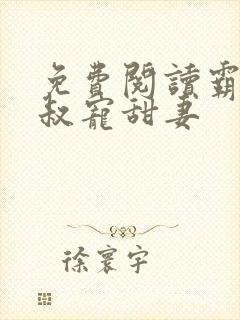 免費閱讀霸
叔寵甜妻
徐寰宇